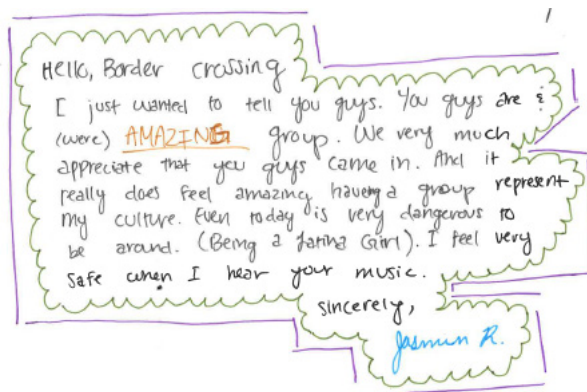 Hello, Border crossing
I just wanted to tell you guys. You guys are &
(were) AMAZING group. We very much
appreciate that you guys came in. And it
really does feel amazing having a group represent
my culture. Even today is very dangerous to
be around. (Being a Latina Girl). I feel very
safe when I hear your music.
sincerely,
Jasmin R.